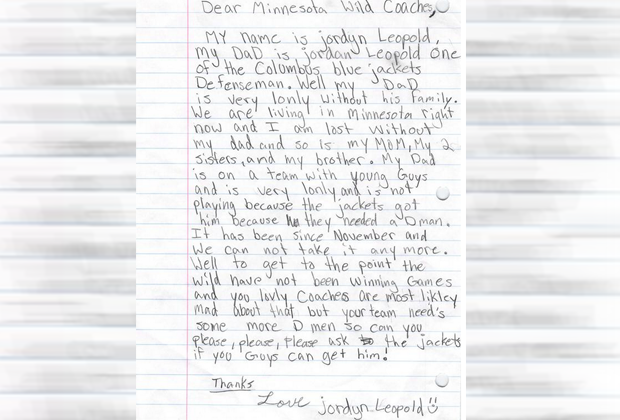 Dear Minnesota Wild Coaches,
My name is jordyn Leopold,
my DaD is jordan Leopold One
of the Columbus blue jackets
Defenseman. Well my DaD
is very lonly without his family.
We are living in Minnesota right
now and I am lost without
my dad and so is my MOM, My 2
sisters, and my brother. My Dad
is on a team with young Guys
and is very lonly and is not
playing because the jackets got
him because they needed a Dman.
It has been since November and
We can not take it any more.
Well to get to the point the
Wild have not been winning Games
and you luvly Coaches are most likley
mad about that but your team need's
some more D men so can you
please, please, please ask the jackets
if you Guys can get him!
Thanks
Love jordyn Leopold